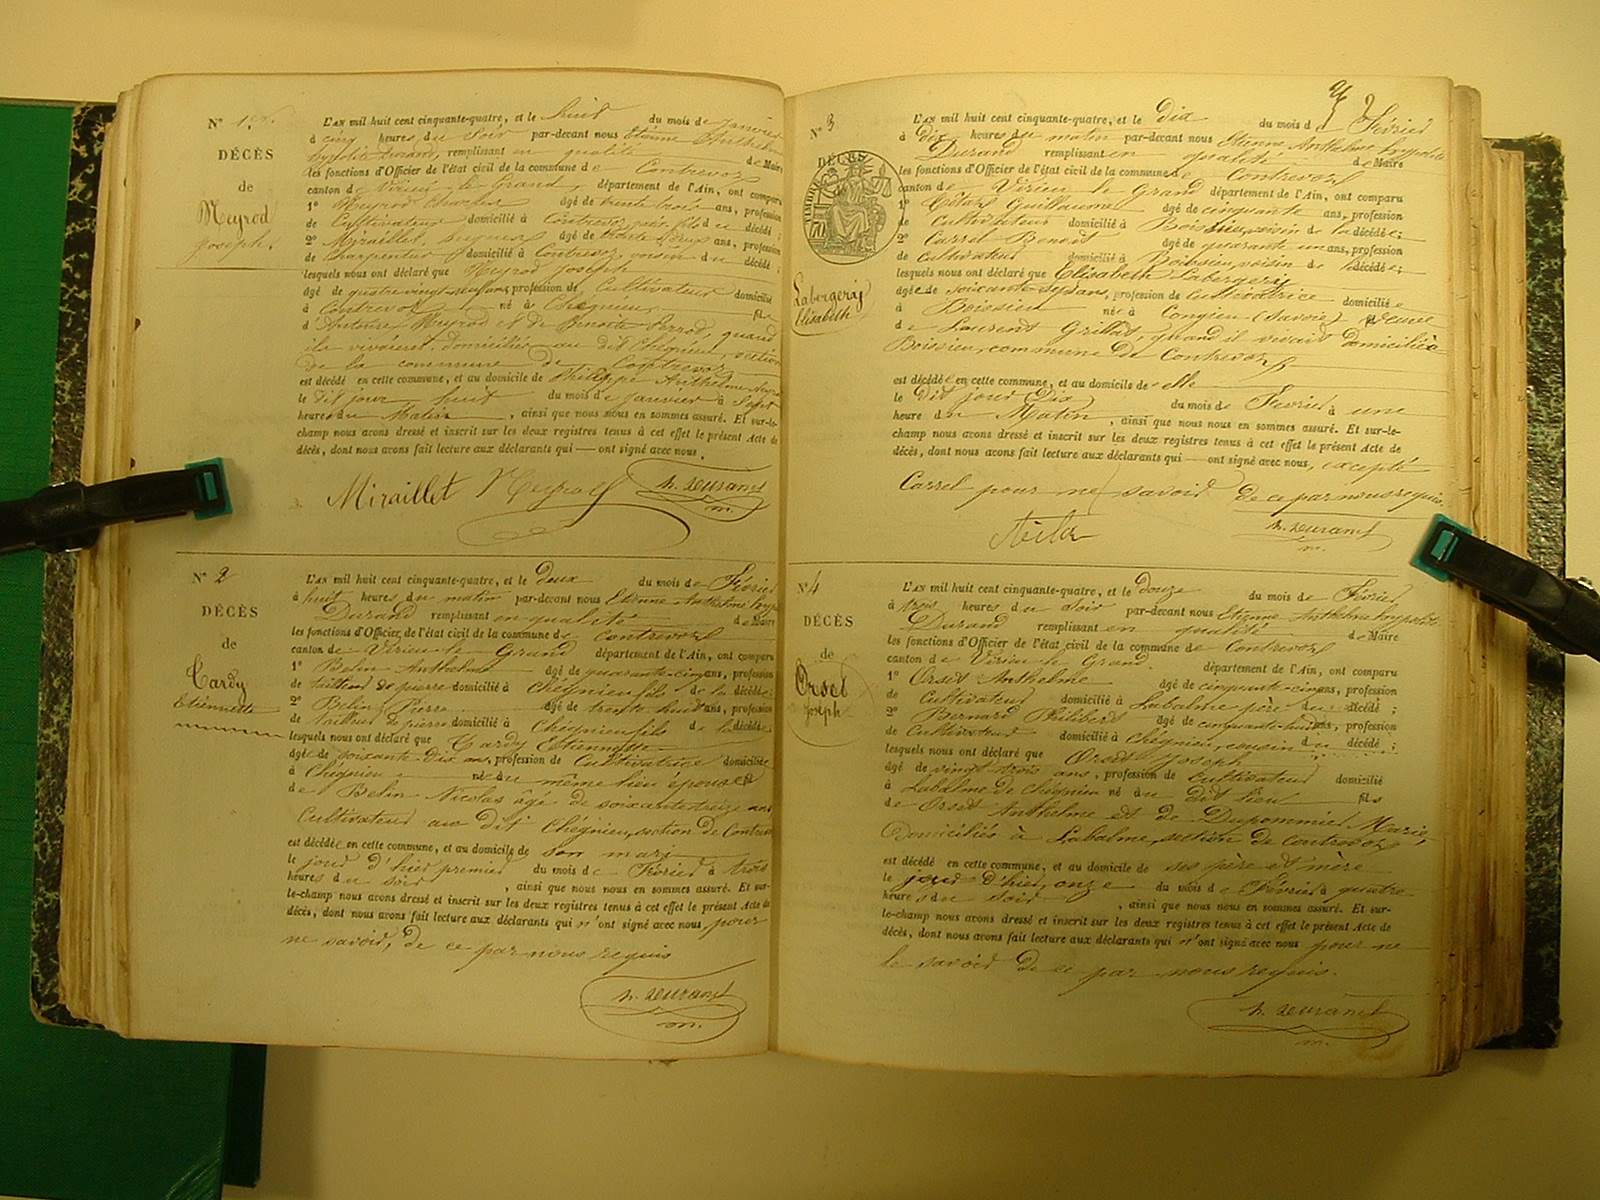 N° 1er.
DÉCÈS
de
Meyrod
Joseph.
L'AN mil huit cent cinquante-quatre, et le huit du mois de Janvier
à cinq heures du soir par-devant nous Etienne Anthelme
hypolite Durand, remplissant en qualité de Maire
les fonctions d'Officier de l'état civil de la commune de Contrevoz
canton de Virieu le Grand, département de l'Ain, ont comparu
1° Meyrod Charles âgé de trente trois ans, profession
de Cultivateur domicilié à Contrevoz, fils du décédé ;
2° Miraillet, âgé de trente ans, profession
de Charpentier domicilié à Contrevoz, voisin du décédé ;
lesquels nous ont déclaré que Meyrod Joseph
âgé de quatre vingt ans, profession de Cultivateur domicilié
à Contrevoz né à Chegnieu, fils
d'Antoine Meyrod et de Benoite Perrod, quand
ils vivaient, domiciliés au dit Chégnieu, section
de la commune de Contrevoz
est décédé en cette commune, et au domicile de Philippe Anthelme
le dit jour huit du mois de Janvier à Sept
heures du Matin, ainsi que nous nous en sommes assuré. Et sur-le-
champ nous avons dressé et inscrit sur les deux registres tenus à cet effet le présent Acte de
décès, dont nous avons fait lecture aux déclarants qui — ont signé avec nous.
Miraillet Meyrod h. Durand
m.
N° 2
DÉCÈS
de
Tardy
Etiennette
L'AN mil huit cent cinquante-quatre, et le deux du mois de Février
à huit heures du matin par-devant nous Etienne Anthelme hyp
Durand remplissant en qualité de Maire
les fonctions d'Officier de l'état civil de la commune de Contrevoz
canton de Virieu le Grand département de l'Ain, ont comparu
1° Belin Anthelme âgé de quarante-cinq ans, profession
de tailleur de pierre domicilié à Chégnieu fils de la décédée;
2° Belin Pierre âgé de trente huit ans, profession
de tailleur de pierre domicilié à Chégnieu fils de la décédée
lesquels nous ont déclaré que Tardy Etiennette
âgée de soixante dix ans, profession de Cultivatrice domiciliée
à Chégnieu née du même lieu épouse
de Belin Nicolas âgé de soixante treize ans
Cultivateur au dit Chégnieu, section de Contrevoz
est décédée en cette commune, et au domicile de son mari
le jour d'hier premier du mois de Février à trois
heures du soir, ainsi que nous nous en sommes assuré. Et sur-
le-champ nous avons dressé et inscrit sur les deux registres tenus à cet effet le présent Acte de
décès, dont nous avons fait lecture aux déclarants qui n'ont signé avec nous pour
ne savoir, de ce par nous requis
h. Durand
m.
N° 3
DÉCÈS
TIMBRE
Labergeraj
Elisabeth
L'AN mil huit cent cinquante-quatre, et le dix du mois de Février
à Dix heures du matin par-devant nous Etienne Anthelme hypolite
Durand remplissant en qualité de Maire
les fonctions d'Officier de l'état civil de la commune de Contrevoz
canton de Virieu le Grand département de l'Ain, ont comparu
1° Guillaume âgé de cinquante ans, profession
de Cultivateur domicilié à Boissieu, voisin de la décédée;
2° Carrel Benoit âgé de quarante un ans, profession
de Cultivateur domicilié à Boissieu, voisin de la décédée;
lesquels nous ont déclaré que Elisabeth Labergeraj
âgée de soixante-sept ans, profession de Cultivatrice domiciliée
à Boissieu née à Longieu (Savoie) veuve
de Laurent Grillot, quand il vivait domicilié à
Boissieu, commune de Contrevoz
est décédée en cette commune, et au domicile de elle
le Dit jour Dix du mois de Février à une
heure du Matin, ainsi que nous nous en sommes assuré. Et sur-le-
champ nous avons dressé et inscrit sur les deux registres tenus à cet effet le présent Acte de
décès, dont nous avons fait lecture aux déclarants qui — ont signé avec nous, excepté
Carrel pour ne savoir de ce par nous requis.
h. Durand
m.
N° 4
DÉCÈS
de
Orset
Joseph
L'AN mil huit cent cinquante-quatre, et le douze du mois de Février
à trois heures du soir par-devant nous Etienne Anthelme hypolite
Durand remplissant en qualité de Maire
les fonctions d'Officier de l'état civil de la commune de Contrevoz
canton de Virieu le Grand. département de l'Ain, ont comparu
1° Orset Anthelme âgé de cinquante-cinq ans, profession
de Cultivateur domicilié à Labalme père du décédé ;
2° Bernard Philibert âgé de cinquante-huit ans, profession
de Cultivateur domicilié à Chégnieu, cousin du décédé ;
lesquels nous ont déclaré que Orset Joseph
âgé de vingt trois ans, profession de Cultivateur domicilié
à Labalme de Chégnieu né du Dit lieu fils
de Orset Anthelme et de Dupommier Marie,
Domiciliés à Labalme, section de Contrevoz
est décédé en cette commune, et au domicile de ses père et mère
le jour d'hier, onze du mois de Février à quatre
heures du soir, ainsi que nous nous en sommes assuré. Et sur-
le-champ nous avons dressé et inscrit sur les deux registres tenus à cet effet le présent Acte de
décès, dont nous avons fait lecture aux déclarants qui n'ont signé avec nous pour ne
le savoir de ce par nous requis.
h. Durand
m.